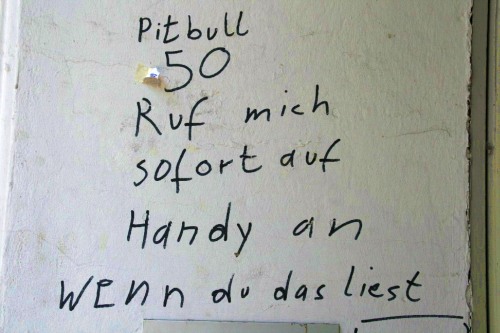 Pitbull
50
Ruf mich
sofort auf
Handy an
Wenn du das liest